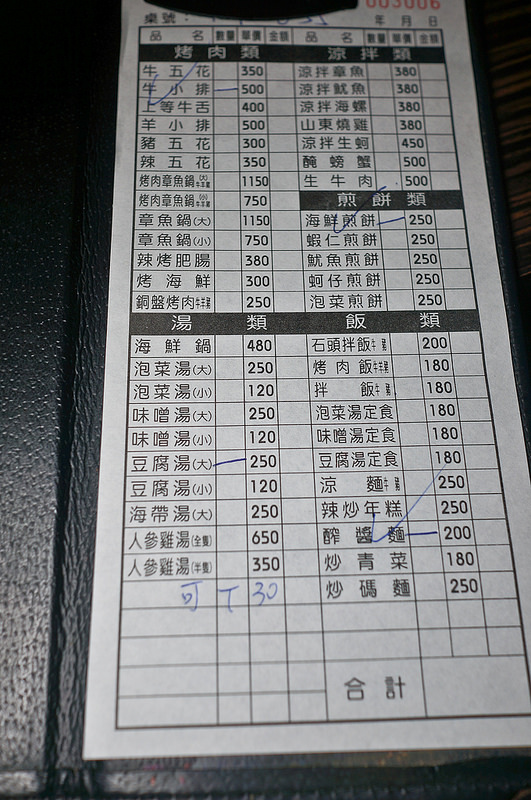 003006
桌號： 年 月 日
品 名 數量 單價 金額 品 名 數量 單價 金額
烤肉類 涼拌類
牛五花 350 涼拌章魚 380
牛小排 500 涼拌魷魚 380
上等牛舌 400 涼拌海螺 380
羊小排 500 山東燒雞 380
豬五花 300 涼拌生蚵 450
辣五花 350 醃螃蟹 500
烤肉章魚鍋(大)牛羊豬 1150 生牛肉 500
烤肉章魚鍋(小)牛羊豬 750 煎餅類
章魚鍋(大) 1150 海鮮煎餅 250
章魚鍋(小) 750 蝦仁煎餅 250
辣烤肥腸 380 魷魚煎餅 250
烤海鮮 300 蚵仔煎餅 250
銅盤烤肉牛羊豬 250 泡菜煎餅 250
湯類 飯類
海鮮鍋 480 石頭拌飯牛 豬 200
泡菜湯(大) 250 烤肉飯牛羊豬 180
泡菜湯(小) 120 拌飯牛 豬 180
味噌湯(大) 250 泡菜湯定食 180
味噌湯(小) 120 味噌湯定食 180
豆腐湯(大) 250 豆腐湯定食 180
豆腐湯(小) 120 涼麵牛 豬 250
海帶湯(大) 250 辣炒年糕 250
人參雞湯(全隻) 650 醡醬麵 200
人參雞湯(半隻) 350 炒青菜 180
可T 30 炒碼麵 250
合計